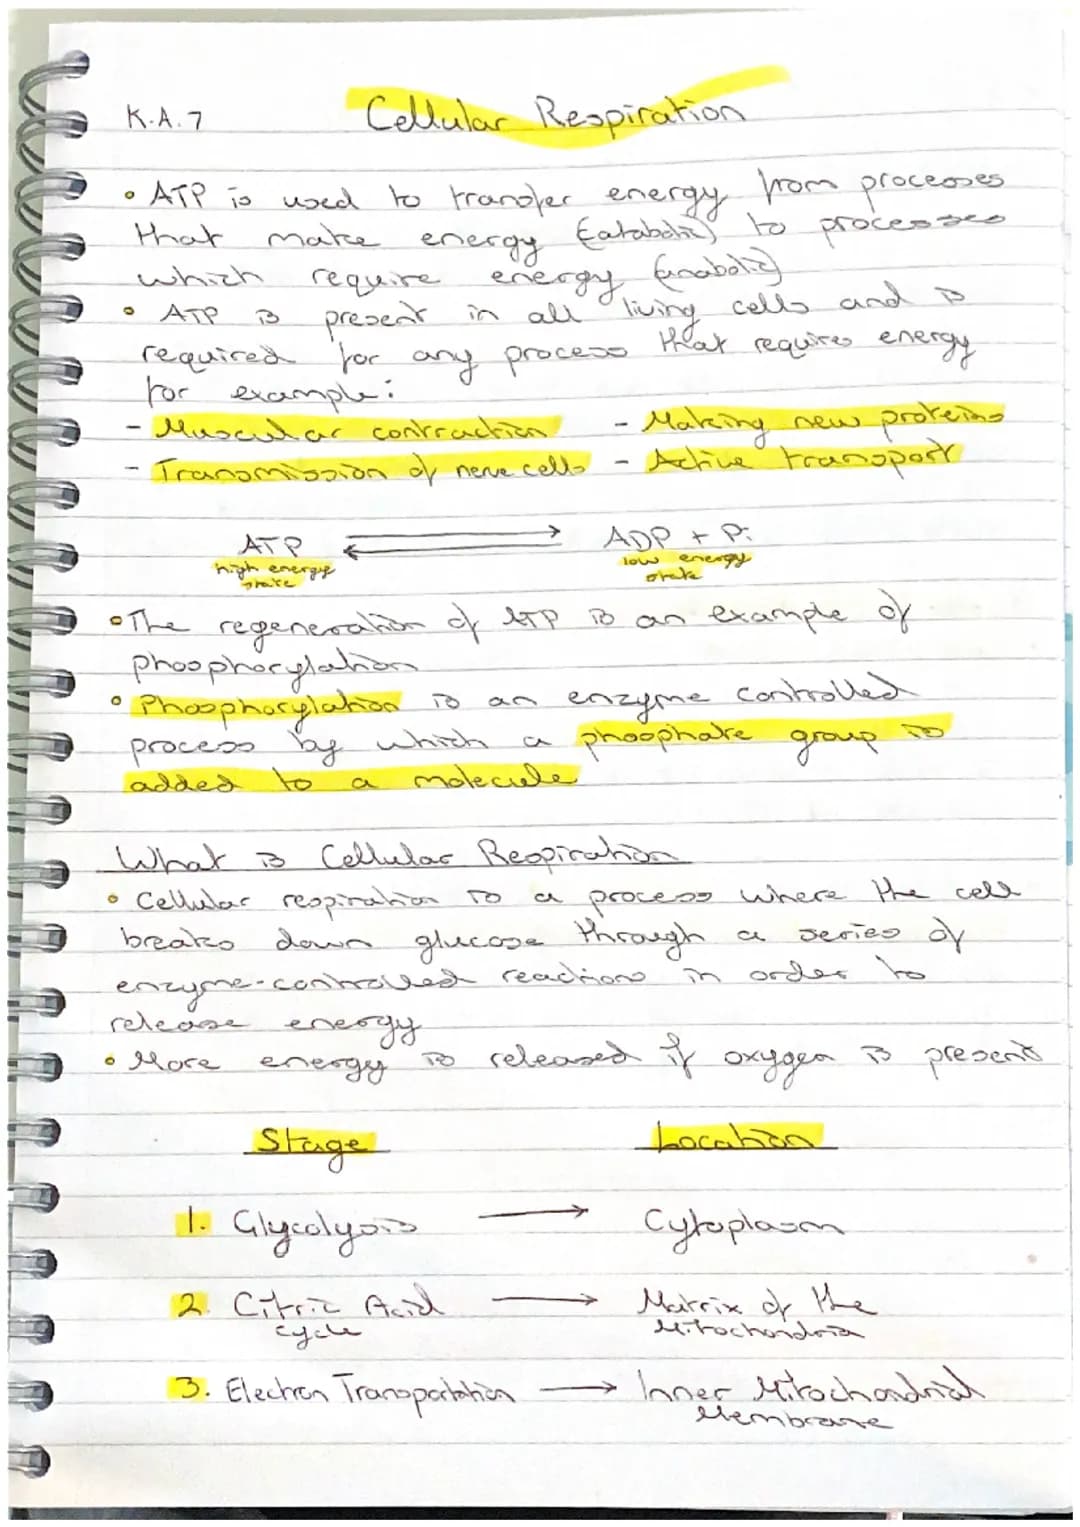 K.A.7 Cellular Respiration
• ATP is used to transfer energy from processes
that make energy (catabolic) to processes
which require energy (anabolic)
• ATP is present in all living cells and is
required for any process that requires energy
for example:
- Muscular contraction - Making new proteins
- Transmission of nerve cells - Active transport
ATP ⇌ ADP + Pi
high energy state low energy state
• The regeneration of ATP is an example of
phosphorylation
• Phosphorylation is an enzyme controlled
process by which a phosphate group is
added to a molecule
What is Cellular Respiration
• Cellular respiration is a process where the cell
breaks down glucose through a series of
enzyme-controlled reactions in order to
release energy
• More energy is released if oxygen is present
Stage Location
1. Glycolysis → Cytoplasm
2. Citric Acid → Matrix of the
cycle Mitochondria
3. Electron Transportation → Inner Mitochondrial
Membrane